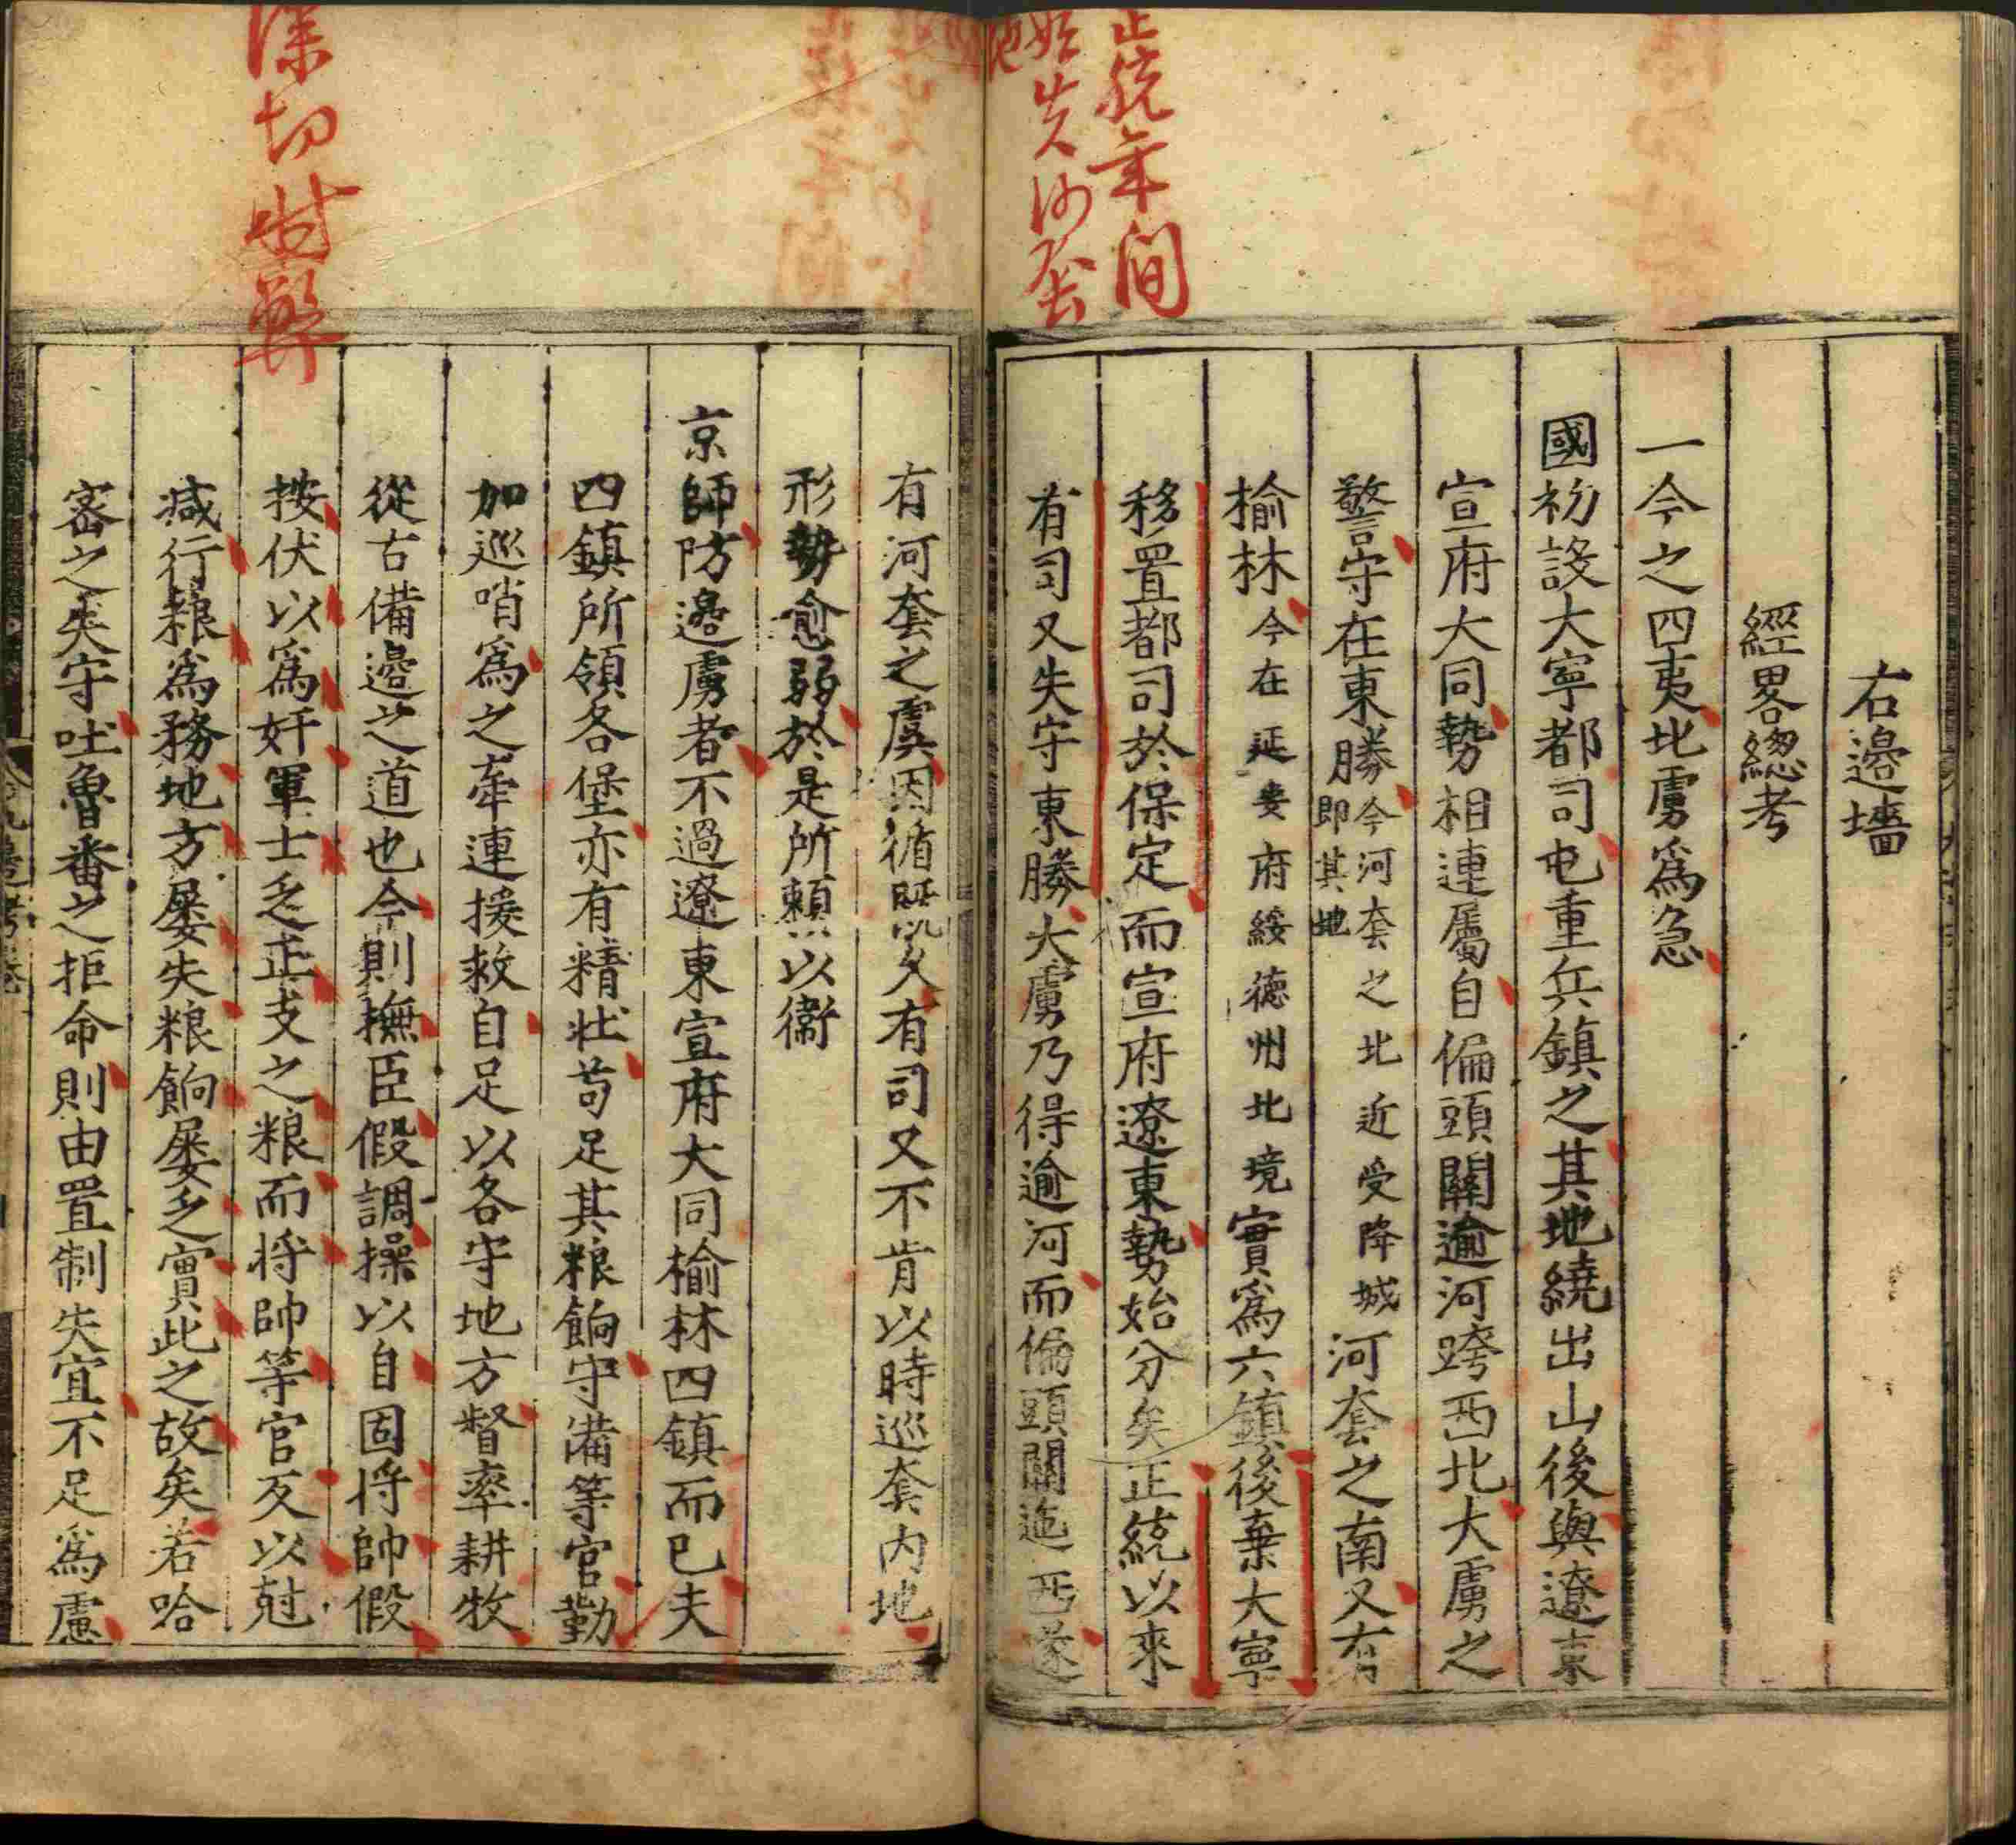 正統年間
始失河套
地
右邊墻
經畧緫考
一今之四夷北虜爲急
國初設大寧都司屯重兵鎮之其地繞出山後與遼東
宣府大同勢相連屬自偏頭關逾河跨西北大虜之
警守在東勝今河套之北近受降城即其地河套之南又有
榆林今在延安府綏德州北境實爲六鎮後棄大寧
移置都司於保定而宣府遼東勢始分矣正統以來
有司又失守東勝大虜乃得逾河而偏頭關迤西遂
深切時弊
有河套之虞因循既久有司又不肯以時巡套内地
形勢愈弱於是所頼以衞
京師防邉虜者不過遼東宣府大同榆林四鎮而已夫
四鎮所領各堡亦有精壯苟足其粮餉守備等官勤
加巡哨爲之牽連援救自足以各守地方督率耕牧
從古備邉之道也今則撫臣假調操以自固将帥假
按伏以爲奸軍士乏正支之粮而将帥等官反以尅
减行粮爲務地方屡失粮餉屡乏實此之故矣若哈
宻之失守吐魯番之拒命則由置制失宜不足爲慮